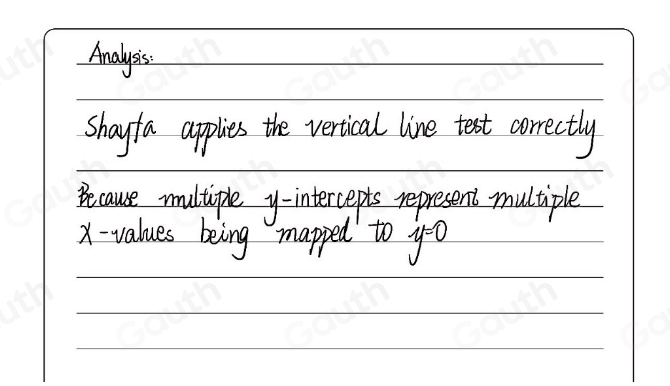 Analysis:
Shayla applies the vertical line test correctly
Because multiple y-intercepts represent multiple
x-values being mapped to y=0